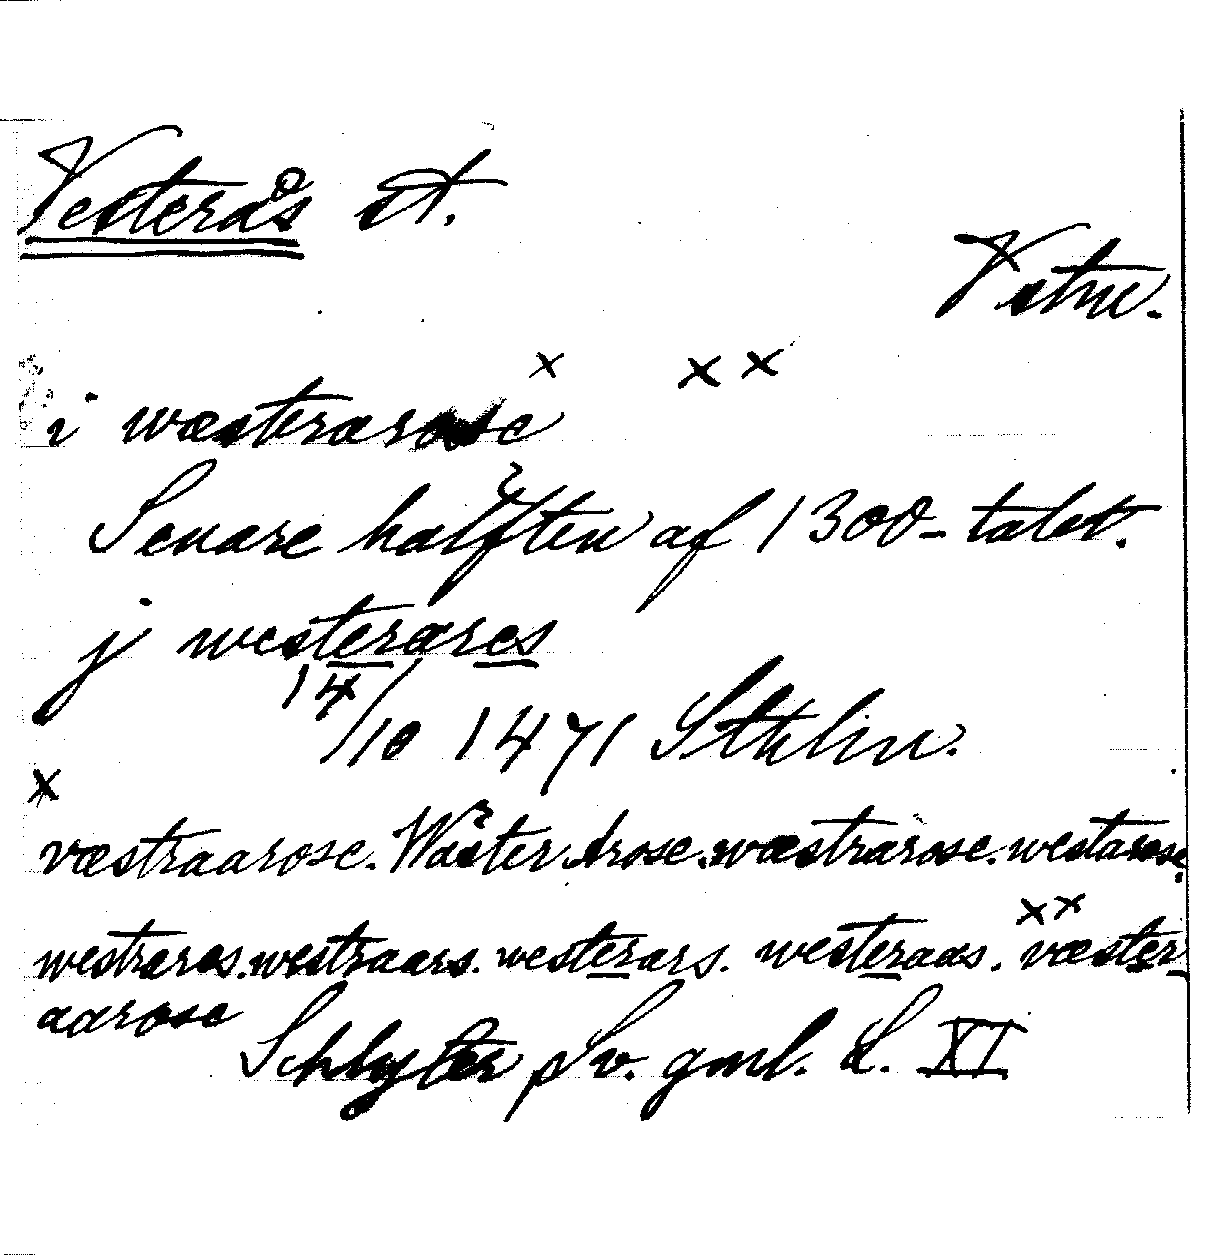 Vesterås st.
Vstm.
x x x
i wæsterarose
Senare hälften af 1300-talet.
j westerares
14/10 1471 Sthlm.
x
væstraarose. Wäster Arose. wæstrarose. westarose.
westraros. westraars. westerars. westeraas. xx væster
aarose
Schlyter Sv. gml. L. XI